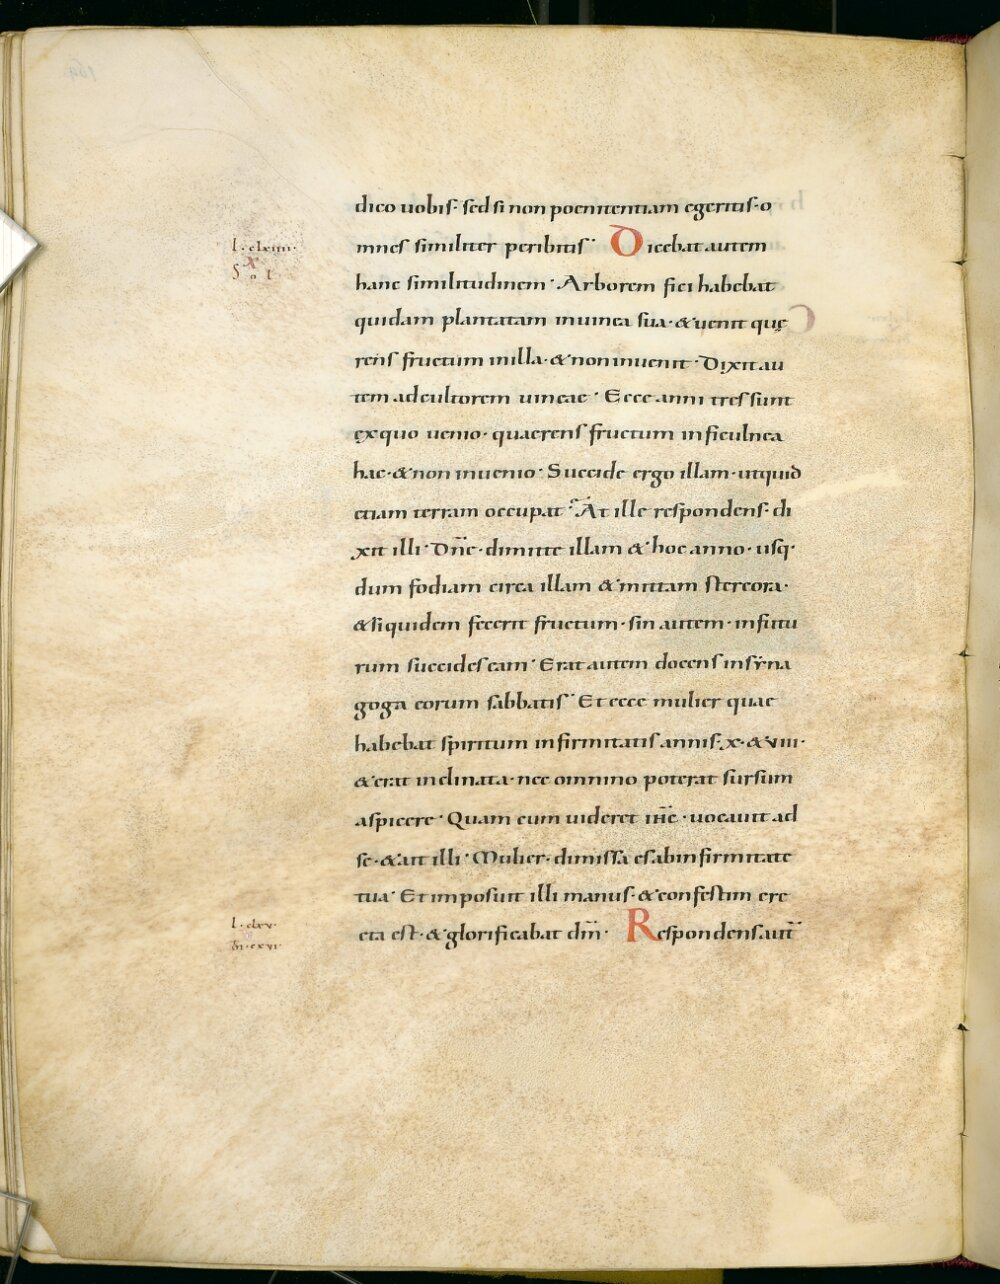 dico uobis· sed si non poenitentiam egeritis· o
l· clxiiii·
mnes similiter peribitis· Dicebat autem
X
S o l
hanc similitudinem· Arborem fici habebat
quidam plantatam inuinea sua· &uenit quę
rens fructum inilla· &noninuenit· Dixit au
tem adcultorem uineae· Ecce anni tres sunt
ex quo uenio· quaerens fructum inficulnea
hac· &non inuenio· Succide ergo illam· utquid
etiam terram occupat· At ille respondens· di
xit illi· Dn̄e· dimitte illam & hoc anno· usq·
dum fodiam circa illam &mittam stercora·
&siquidem fecerit fructum· sin autem· infutu
rum succides eam· Erat autem docens insẏna
goga eorum sabbatis· Et ecce mulier quae
habebat spiritum infirmitatis annis· x· &viii·
&erat inclinata· nec omnino poterat sursum
aspicere· Quam cum uideret ihc̄· uocauit ad
se· &ait illi· Mulier· dimissa es abinfirmitate
tua· Et imposuit illi manus· &confestim ere
l· clxv·
cta est· &glorificabat dm̄· Respondens aut̄
m̄· cxvi·